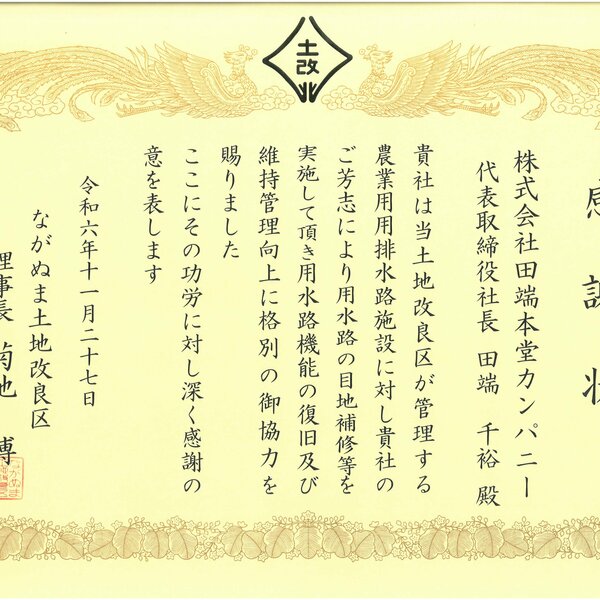 感謝状
株式会社田端本堂カンパニー
代表取締役社長 田端 千裕 殿
貴社は当土地改良区が管理する
農業用用排水路施設に対し貴社の
ご芳志により用水路の目地補修等を
実施して頂き用水路機能の復旧及び
維持管理向上に格別の御協力を
賜りました
ここにその功労に対し深く感謝の
意を表します
令和六年十一月二十七日
ながぬま土地改良区
理事長 菊地 博
土改